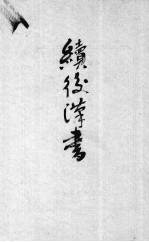 續後漢書